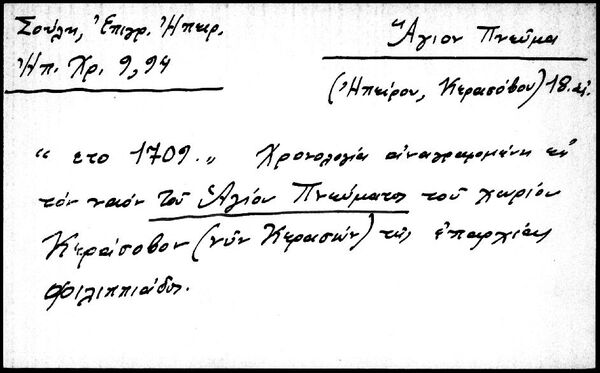 Σούλη, Ἐπιγρ. Ἠπειρ.
Ἠπ. Χρ. 9, 94
Ἅγιον Πνεῦμα
(Ἠπείρου, Κερασόβου) 18. αἰ.
“ ετο 1709. „ Χρονολογία ἀναγραφομένη εἰς
τόν ναόν τοῦ Ἁγίου Πνεύματος τοῦ χωρίου
Κεράσοβον (νῦν Κερασών) τῆς ἐπαρχίας
Φιλιππιάδος.